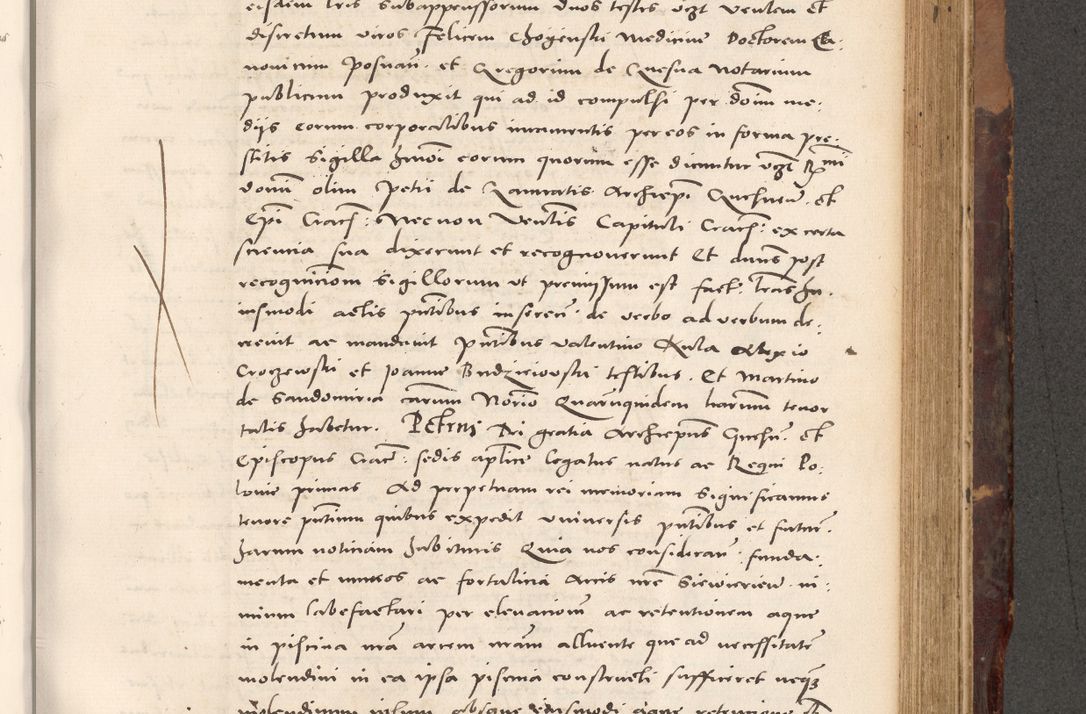 eisdem lris subappensorum duos testes vczt venlem et
discretum viros Felicem Chogenski medicine Doctorem Ca:
nonicum Posnan. et Gregorium de Quesna notarium
publicum produxit qui ad id compulsi per dominum me:
diis eorum corporalibus iuramentis per eos in forma pre:
stitis Sigilla hmoi eorum quorum esse dicuntur vczt Rmi
domi olim Petri de Gamratis Archiepi Gneznen. et
Epi Crac: Necnon Venlis Capituli Crac: ex certa
sciencia sua dixerunt et recognoverunt Et dnus post
recognicionem Sigillorum ut premissum est fact. lras hu.
iusmodi actis pntibus inseren. de verbo ad verbum de:
crevit ac mandavit Pntibus Valentino Kula Alexio
Croczewski et Joanne Budziciowski testibus. Et Martino
de Sandomiria carum Norio Quarumquidem harum tenor
talis habetur. Petrus Dei gratia Archiepus Gnezn. et
Episcopus Crac: sedis aplice Legatus natus ac Regni Po:
lonie primas Ad perpetuam rei memoriam Significamus
tenore pntium quibus expedit universis pntibus et futur.
harum notitiam habituris Quia nos consideran. funda:
menta et muros ac fortalicia Arcis nre Siewierien. ni:
mium labefactari per elevationem ac retentionem aque
in piscina nra arcem nram alluente que ad necessitate
molendini in ea ipsa piscina constructi sufficeret neque
molendinum ipsum absque eiusmodi aque retencione et